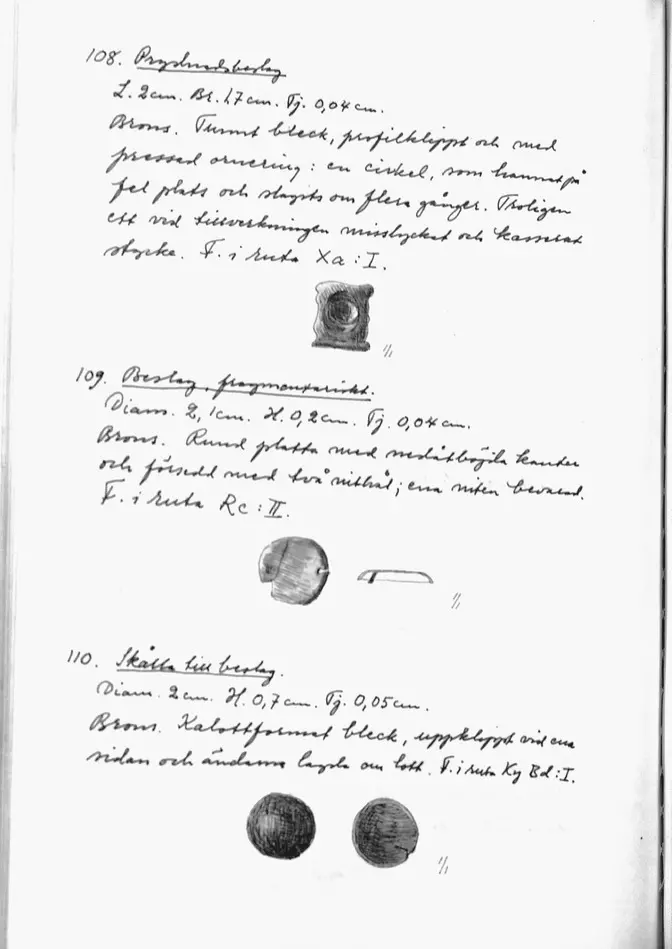 108. Prydnadsbeslag
L. 2 cm. Br. 1,7 cm. Tj. 0,04 cm.
Brons. Tunnt bleck, profilklippt och med
pressad ornering: en cirkel, som hamnat på
fel plats och slagits om flera gånger. Troligen
ett vid tillverkningen misslyckat och kasserat
stycke. F. i ruta Xa:I.
1/1
109. Beslag, fragmentariskt.
Diam. 2,1 cm. H. 0,2 cm. Tj. 0,04 cm.
Brons. Rund platta med nedåtböjda kanter
och försedd med två nithål; ena niten bevarad.
F. i ruta Rc:II.
1/1
110. Skålla till beslag.
Diam. 2 cm. H. 0,7 cm. Tj. 0,05 cm.
Brons. Kalottformat bleck, uppklippt vid ena
sidan och ändarna lagda om lott. F. i ruta Ky Bd:I.
1/1